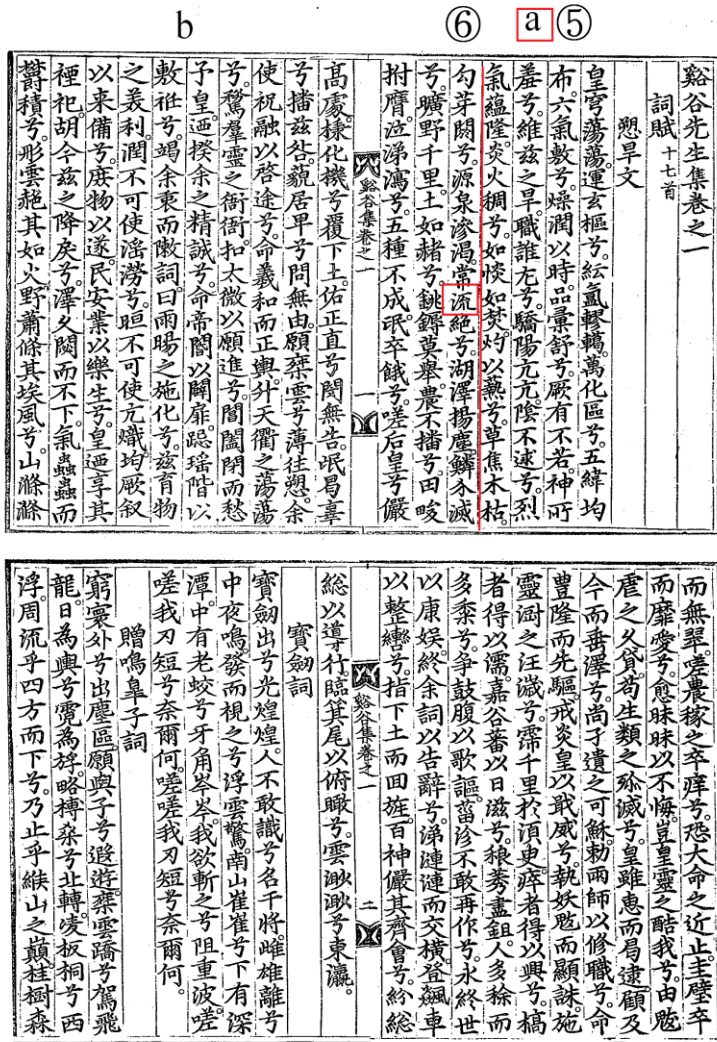 b ⑥ a ⑤
谿谷先生集卷之一
詞賦 十七首
愬旱文
皇穹蕩蕩運玄樞兮。紜氳轇轕萬化區兮。五緯均
布。六氣敷兮。燥潤以時。品彙舒兮。厥有不若。神所
羞兮。維茲之旱。職誰尤兮。驕陽亢亢。陰不逑兮。烈
氣蘊隆。炎火稠兮。如惔如焚。灼以爇兮。草焦木枯。
勾芽閼兮。源泉滲渴。常流絕兮。湖澤揚塵。鱗介滅
兮。曠野千里。土如赭兮。銚鎛莫舉。農不播兮。田畯
拊膺。泣涕瀉兮。五種不成。氓卒餓兮。嗟后皇兮儼
谿谷集卷之一 一
高處。㨾化機兮覆下土。佑正直兮閔無告。氓曷辜
兮播茲咎。藐居卑兮問無由。願乘雲兮薄往愬。余
使祝融以啓途兮。命羲和而正輿。升天衢之蕩蕩
兮。騖羣靈之衙衙。扣太微以願進兮。閶闔閉而愁
予。皇迺揆余之精誠兮。命帝閽以闢扉。跽瑤階以
敷衽兮。竭余衷而敶詞。曰雨暘之施化兮。茲育物
之義利。潤不可使淫澇兮。晅不可使亢熾。均厥叙
以來備兮。庶物以遂。民安業以樂生兮。皇迺享其
禋祀。胡今茲之降戾兮。澤久閟而不下。氣蟲蟲而
欝積兮。彤雲赩其如火。野蕭條其埃風兮。山滌滌
而無翠。嗟農稼之卒痒兮。恐大命之近止。圭璧卒
而靡愛兮。愈昧昧以不悔。豈皇靈之酷我兮。由魃
虐之久貸。苟生類之殄滅兮。皇雖惠而曷逮。顧及
今而垂澤兮。尚孑遺之可穌。勑雨師以修職兮。命
豊隆而先驅。戒炎皇以戢威兮。執妖魃而顯誅。施
靈澍之汪濊兮。霈千里於須臾。瘁者得以興兮。槁
者得以濡。嘉谷蕃以日滋兮。稂莠盡鉏。人多稌而
多黍兮。爭鼓腹以歌謳。菑沴不敢再作兮。永終世
以康娛。終余詞以告辭兮。涕漣漣而交橫。登飆車
以整轡兮。指下土而回旌。百神儼其齊會兮。紛総
谿谷集卷之一 二
総以導行。臨箕尾以俯瞰兮。雲渺渺兮東瀛。
寶劒詞
寶劒出兮光煌煌。人不敢識兮名干將。雌雄離兮
中夜鳴。發而視之兮浮雲驚。南山崔崔兮下有深
潭。中有老蛟兮牙角岑岑。我欲斬之兮阻重波。嗟
嗟我刃短兮奈爾何。嗟嗟我刃短兮奈爾何。
贈鳴皐子詞
窮寰外兮出塵區。願與子兮遐遊。乘雲蹻兮駕飛
龍。日為輿兮霓為斿。略搏桑兮北轉。凌板桐兮西
浮。周流乎四方而下兮。乃止乎緱山之巔。桂樹森